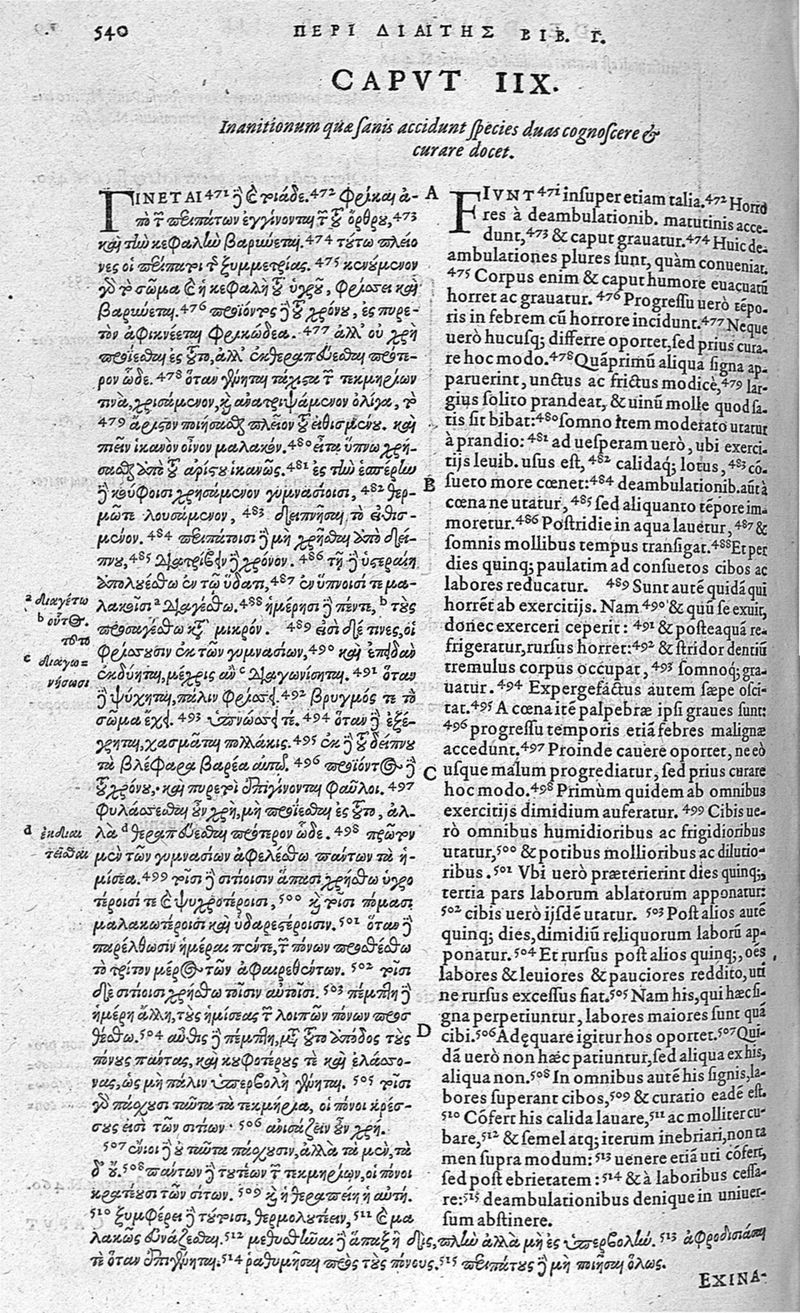 540
ΠΕΡῚ ΔΙΑΙΤΗΣ ΒΙΒ. Γ.
CAPVT IIX.
Inanitionum quæ sanis accidunt species duas cognoscere &
curare docet.
ΓΙΝΕΤΑΙ 471 ἢ τοιάδε. 472 φρίκαι ἀ-
πὸ τῶν περιπάτων ἐγγίνονται τῶν τοῦ ὄρθρου, 473
καὶ τὴν κεφαλὴν βαρύνεται. 474 τούτῳ πλείο
νες οἱ περίπατοι τῆς ξυμμετρίας. 475 κενούμενον
γὰρ τὸ σῶμα καὶ ἡ κεφαλὴ τοῦ ὑγροῦ, φρίσσει καὶ
βαρύνεται. 476 προϊόντος δὲ τοῦ χρόνου, ἐς πυρε-
τὸν ἀφικνέεται φρικώδεα. 477 ἀλλ' οὐ χρὴ
προΐεσθαι ἐς τοῦτο, ἀλλ' ἐκθεραπεύεσθαι πρότε-
ρον ὧδε. 478 ὅταν γένηται τάχιστα τῶν τεκμηρίων
τινὰ, χρισάμενον, καὶ ἀνατριψάμενον ὀλίγα, τὸ
479 ἄριστον ποιήσασθαι πλεῖον τοῦ εἰθισμένου. καὶ
πιεῖν ἱκανὸν οἶνον μαλακόν. 480 εἶτα ὕπνῳ χρή-
σασθαι ἀπὸ τοῦ ἀρίστου ἱκανῶς. 481 ἐς τὴν ἑσπέρην
δὲ κούφοισι χρησάμενον γυμνασίοισι, 482 θερ-
μῷ τε λουσάμενον, 483 δειπνῆσαι τὸ εἰθισ-
μένον. 484 περιπάτοισι δὲ μὴ χρῆσθαι ἀπὸ δεί-
πνου, 485 διατρίβειν δὲ χρόνον. 486 τῇ δὲ ὑστεραίῃ
ἀπολυέσθω ἐν τῷ ὕδατι, 487 ἐν ὕπνοισί τε μα-
λακοῖσι a διαγέσθω. 488 ἡμέρῃσι δὲ πέντε, b τοὺς
προσαγέσθω κατὰ μικρόν. 489 εἰσὶ δέ τινες, οἳ
φρίσσουσιν ἐκ τῶν γυμνασίων, 490 καὶ ἐπειδὰν
ἐκδύηται, μέχρις ἂν c διαγωνίσηται. 491 ὅταν
δὲ ψύχηται, πάλιν φρίσσει. 492 βρυγμός τε τὸ
σῶμα ἔχει. 493 ὑπνώσσει τέ. 494 ὅταν δὲ ἐξέ-
γρηται, χασμᾶται πολλάκις. 495 ἐκ δὲ τοῦ δείπνου
τὰ βλέφαρα βαρέα αὐτῷ. 496 προϊόντος δὲ
τοῦ χρόνου, καὶ πυρετοὶ ἐπιγίνονται φαῦλοι. 497
φυλάσσεσθαι οὖν χρὴ, μὴ προΐεσθαι ἐς τοῦτο, ἀλ-
λὰ d θεραπεύεσθαι πρότερον ὧδε. 498 πρῶτον
μὲν τῶν γυμνασίων ἀφελέσθω πάντων τὰ ἡ-
μίσεα. 499 τοῖσι δὲ σιτίοισιν ἅπασι χρήσθω ὑγρο
τέροισί τε καὶ ψυχροτέροισι, 500 καὶ τοῖσι πόμασι
μαλακωτέροισι καὶ ὑδαρεστέροισιν. 501 ὅταν δὲ
παρέλθωσιν ἡμέραι πέντε, τῶν πόνων προσθέσθω
τὸ τρίτον μέρος τῶν ἀφαιρεθέντων. 502 τοῖσι
δὲ σιτίοισι χρήσθω τοῖσιν αὐτοῖσι. 503 πέμπτῃ δὲ
ἡμέρῃ ἄλλῃ, τοὺς ἡμίσεας τῶν λοιπῶν πόνων προσ
θέσθω. 504 αὖθις δὲ πέμπτῃ, μετὰ τοῦτο ἀπόδος τοὺς
πόνους πάντας, καὶ κουφοτέρους τε καὶ ἐλάσσο-
νας, ὡς μὴ πάλιν ὑπερβολὴ γένηται. 505 τοῖσι
γὰρ πάσχουσι ταῦτα τὰ τεκμήρια, οἱ πόνοι κρέσ-
σους εἰσὶ τῶν σιτίων. 506 ἀνισάζειν οὖν χρή.
507 ἔνιοι δὲ οὐ ταῦτα πάσχουσιν, ἀλλὰ τὰ μὲν, τὰ
δ' οὔ. 508 πάντων δὲ τουτέων τῶν τεκμηρίων, οἱ πόνοι
κρατέουσι τῶν σίτων. 509 καὶ ἡ θεραπείη ἡ αὐτή.
510 ξυμφέρει δὲ τούτοισι, θερμολουτέειν, 511 καὶ μα
λακῶς εὐνάζεσθαι. 512 μεθυσθῆναι δὲ ἅπαξ ἢ δὶς, πλὴν ἀλλὰ μὴ ἐς ὑπερβολήν. 513 ἀφροδισιάσαι
τε ὅταν ἐπιγένηται. 514 ῥαθυμῆσαι πρὸς τοὺς πόνους. 515 περιπάτους δὲ μὴ ποιῆσαι ὅλως.
a διαγέτω
b οὕτος
τοῦτο
c διαγω=
νήσωσι
d ἐκθερα
τεύεσθαι
A
B
C
D
FIVNT 471 insuper etiam talia. 472 Horro
res à deambulationib. matutinis acce-
dunt, 473 & caput grauatur. 474 Huic de-
ambulationes plures sunt, quàm conueniat.
475 Corpus enim & caput humore euacuatū
horret ac grauatur. 476 Progressu uerò tēpo-
ris in febrem cū horrore incidunt. 477 Neque
uerò hucusq; differre oportet, sed prius cura-
re hoc modo. 478 Quāprimū aliqua signa ap-
paruerint, unctus ac frictus modicè, 479 lar-
gius solito prandeat, & uinū molle quod sa-
tis sit bibat: 480 somno item moderato utatur
à prandio: 481 ad uesperam uerò, ubi exerci-
tijs leuib. usus est, 482 calidaq; lotus, 483 cō-
sueto more cœnet: 484 deambulationib. aūt à
cœna ne utatur, 485 sed aliquanto tēpore im-
moretur. 486 Postridie in aqua lauetur, 487 &
somnis mollibus tempus transigat. 488 Et per
dies quinq; paulatim ad consuetos cibos ac
labores reducatur. 489 Sunt autē quidā qui
horrēt ab exercitijs. Nam 490 & quū se exuit,
donec exerceri ceperit: 491 & posteaquā re-
frigeratur, rursus horret: 492 & stridor dentiū
tremulus corpus occupat, 493 somnoq; gra-
uatur. 494 Expergefactus autem sæpe osci-
tat. 495 A cœna itē palpebræ ipsi graues sunt:
496 progressu temporis etiā febres malignæ
accedunt. 497 Proinde cauere oportet, ne eò
usque malum progrediatur, sed prius curare
hoc modo. 498 Primùm quidem ab omnibus
exercitijs dimidium auferatur. 499 Cibis ue-
rò omnibus humidioribus ac frigidioribus
utatur, 500 & potibus mollioribus ac dilutio-
ribus. 501 Vbi uerò præterierint dies quinq;,
tertia pars laborum ablatorum apponatur:
502 cibis uerò ijsdē utatur. 503 Post alios autē
quinq; dies, dimidiū reliquorum laborū ap-
ponatur. 504 Et rursus post alios quinq;, oēs
labores & leuiores & pauciores reddito, uti
ne rursus excessus fiat. 505 Nam his, qui hæc si-
gna perpetiuntur, labores maiores sunt quā
cibi. 506 Adęquare igitur hos oportet. 507 Qui-
dā uerò non hæc patiuntur, sed aliqua ex his,
aliqua non. 508 In omnibus autē his signis, la-
bores superant cibos, 509 & curatio eadē est.
510 Cōfert his calida lauare, 511 ac molliter cu-
bare, 512 & semel atq; iterum inebriari, non ta
men supra modum: 513 uenere etiā uti cōfert,
sed post ebrietatem: 514 & à laboribus cessa-
re: 515 deambulationibus denique in uniuer-
sum abstinere.
EXINA-